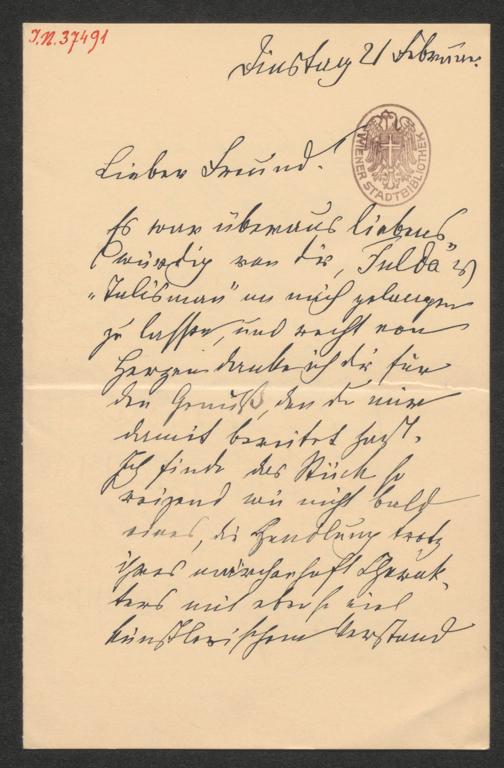 I.N. 37491
Dinstag 21 Februar.
WIENER STADTBIBLIOTHEK
Lieber Freund!
Es war überaus liebens
würdig von dir, „Fulda"'s
„Talisman" an mich gelangen
zu lassen, und recht von
Herzen danke ich dir für
den Genuß, den du mir
damit bereitet hast.
Ich finde das Stück so
reizend wie nicht bald
eines, die Handlung trotz
ihres märchenhaft Charak-
ters mit ebenso viel
künstlerischem Verstand